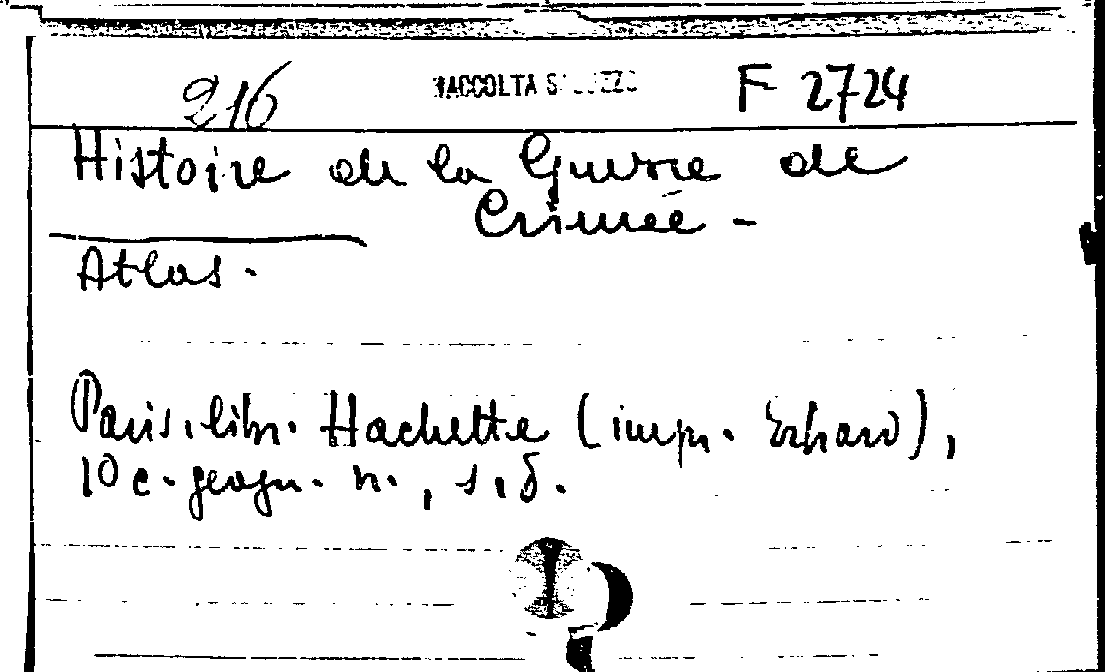 216 RACCOLTA F 2724
Histoire de la Guerre de
Crimée -
Atlas.
Paris, libr. Hachette (impr. Erhard),
10 c. geogr. n., s.d.